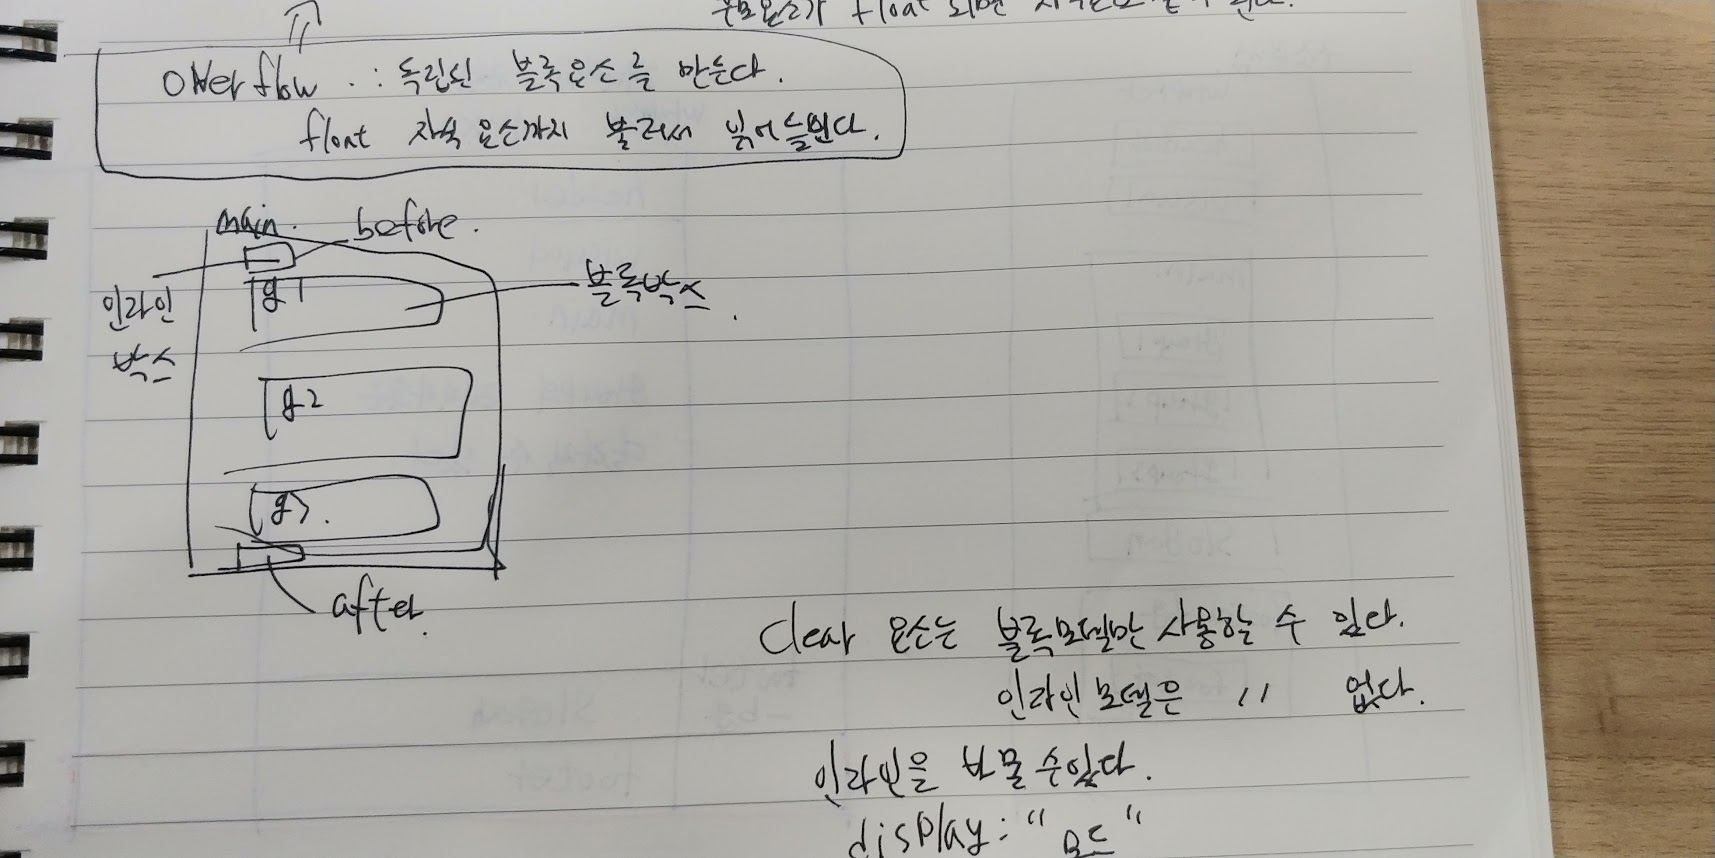 float 되면
overflow : 독립된 블록요소를 만든다.
float 자식 요소까지 불러서 읽어들인다.
main. before.
인라인
박스
g1
블록박스.
g2
g3.
after.
clear 요소는 블록모델만 사용할 수 있다.
인라인모델은 〃 없다.
인라인을 바꿀 수 있다.
display: "모드"